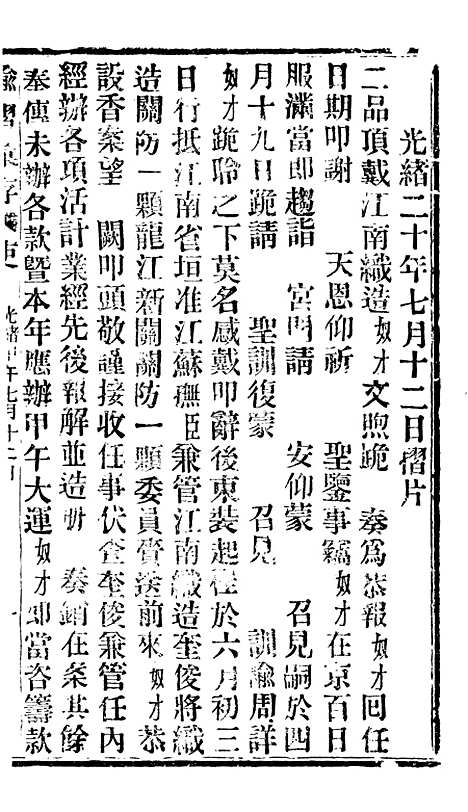 光緒二十年七月十二日摺片
二品頂戴江南織造奴才文煦跪 奏爲恭報奴才回任
日期叩謝 天恩仰祈 聖鑒事竊奴才在京百日
服滿當即趨詣 宮門請 安仰蒙 召見嗣於四
月十九日跪請 聖訓復蒙 召見 訓諭周詳
奴才跪聆之下莫名感戴叩辭後束裝起程於六月初三
日行抵江南省垣准江蘇撫臣兼管江南織造奎俊將織
造關防一顆龍江新關關防一顆委員賫送前來奴才恭
設香案望 闕叩頭敬謹接收任事伏查奎俊兼管任內
經辦各項活計業經先後報解並造册 奏銷在案其餘
奉傳未辦各款暨本年應辦甲午大運奴才卽當咨籌款
諭摺彙存 光緒 年七月十二日 一